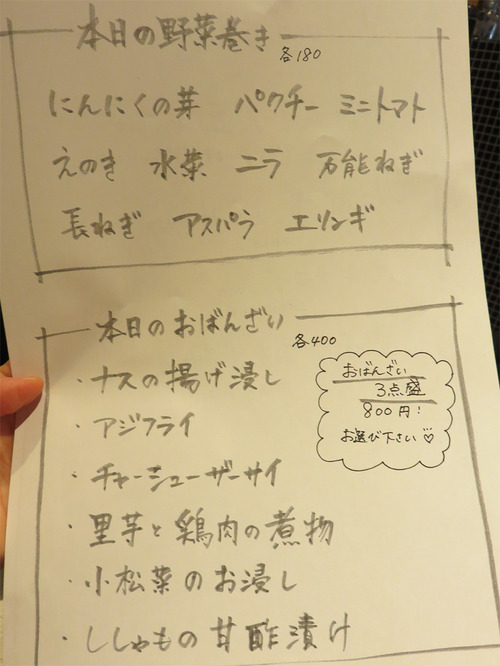 本日の野菜巻き
各180
にんにくの芽 パクチー ミニトマト
えのき 水菜 ニラ 万能ねぎ
長ねぎ アスパラ エリンギ
本日のおばんざい
各400
・ナスの揚げ浸し
・アジフライ
・チャーシューザーサイ
・里芋と鶏肉の煮物
・小松菜のお浸し
・ししゃもの甘酢漬け
おばんざい
3点盛
800円!
お選び下さい♡